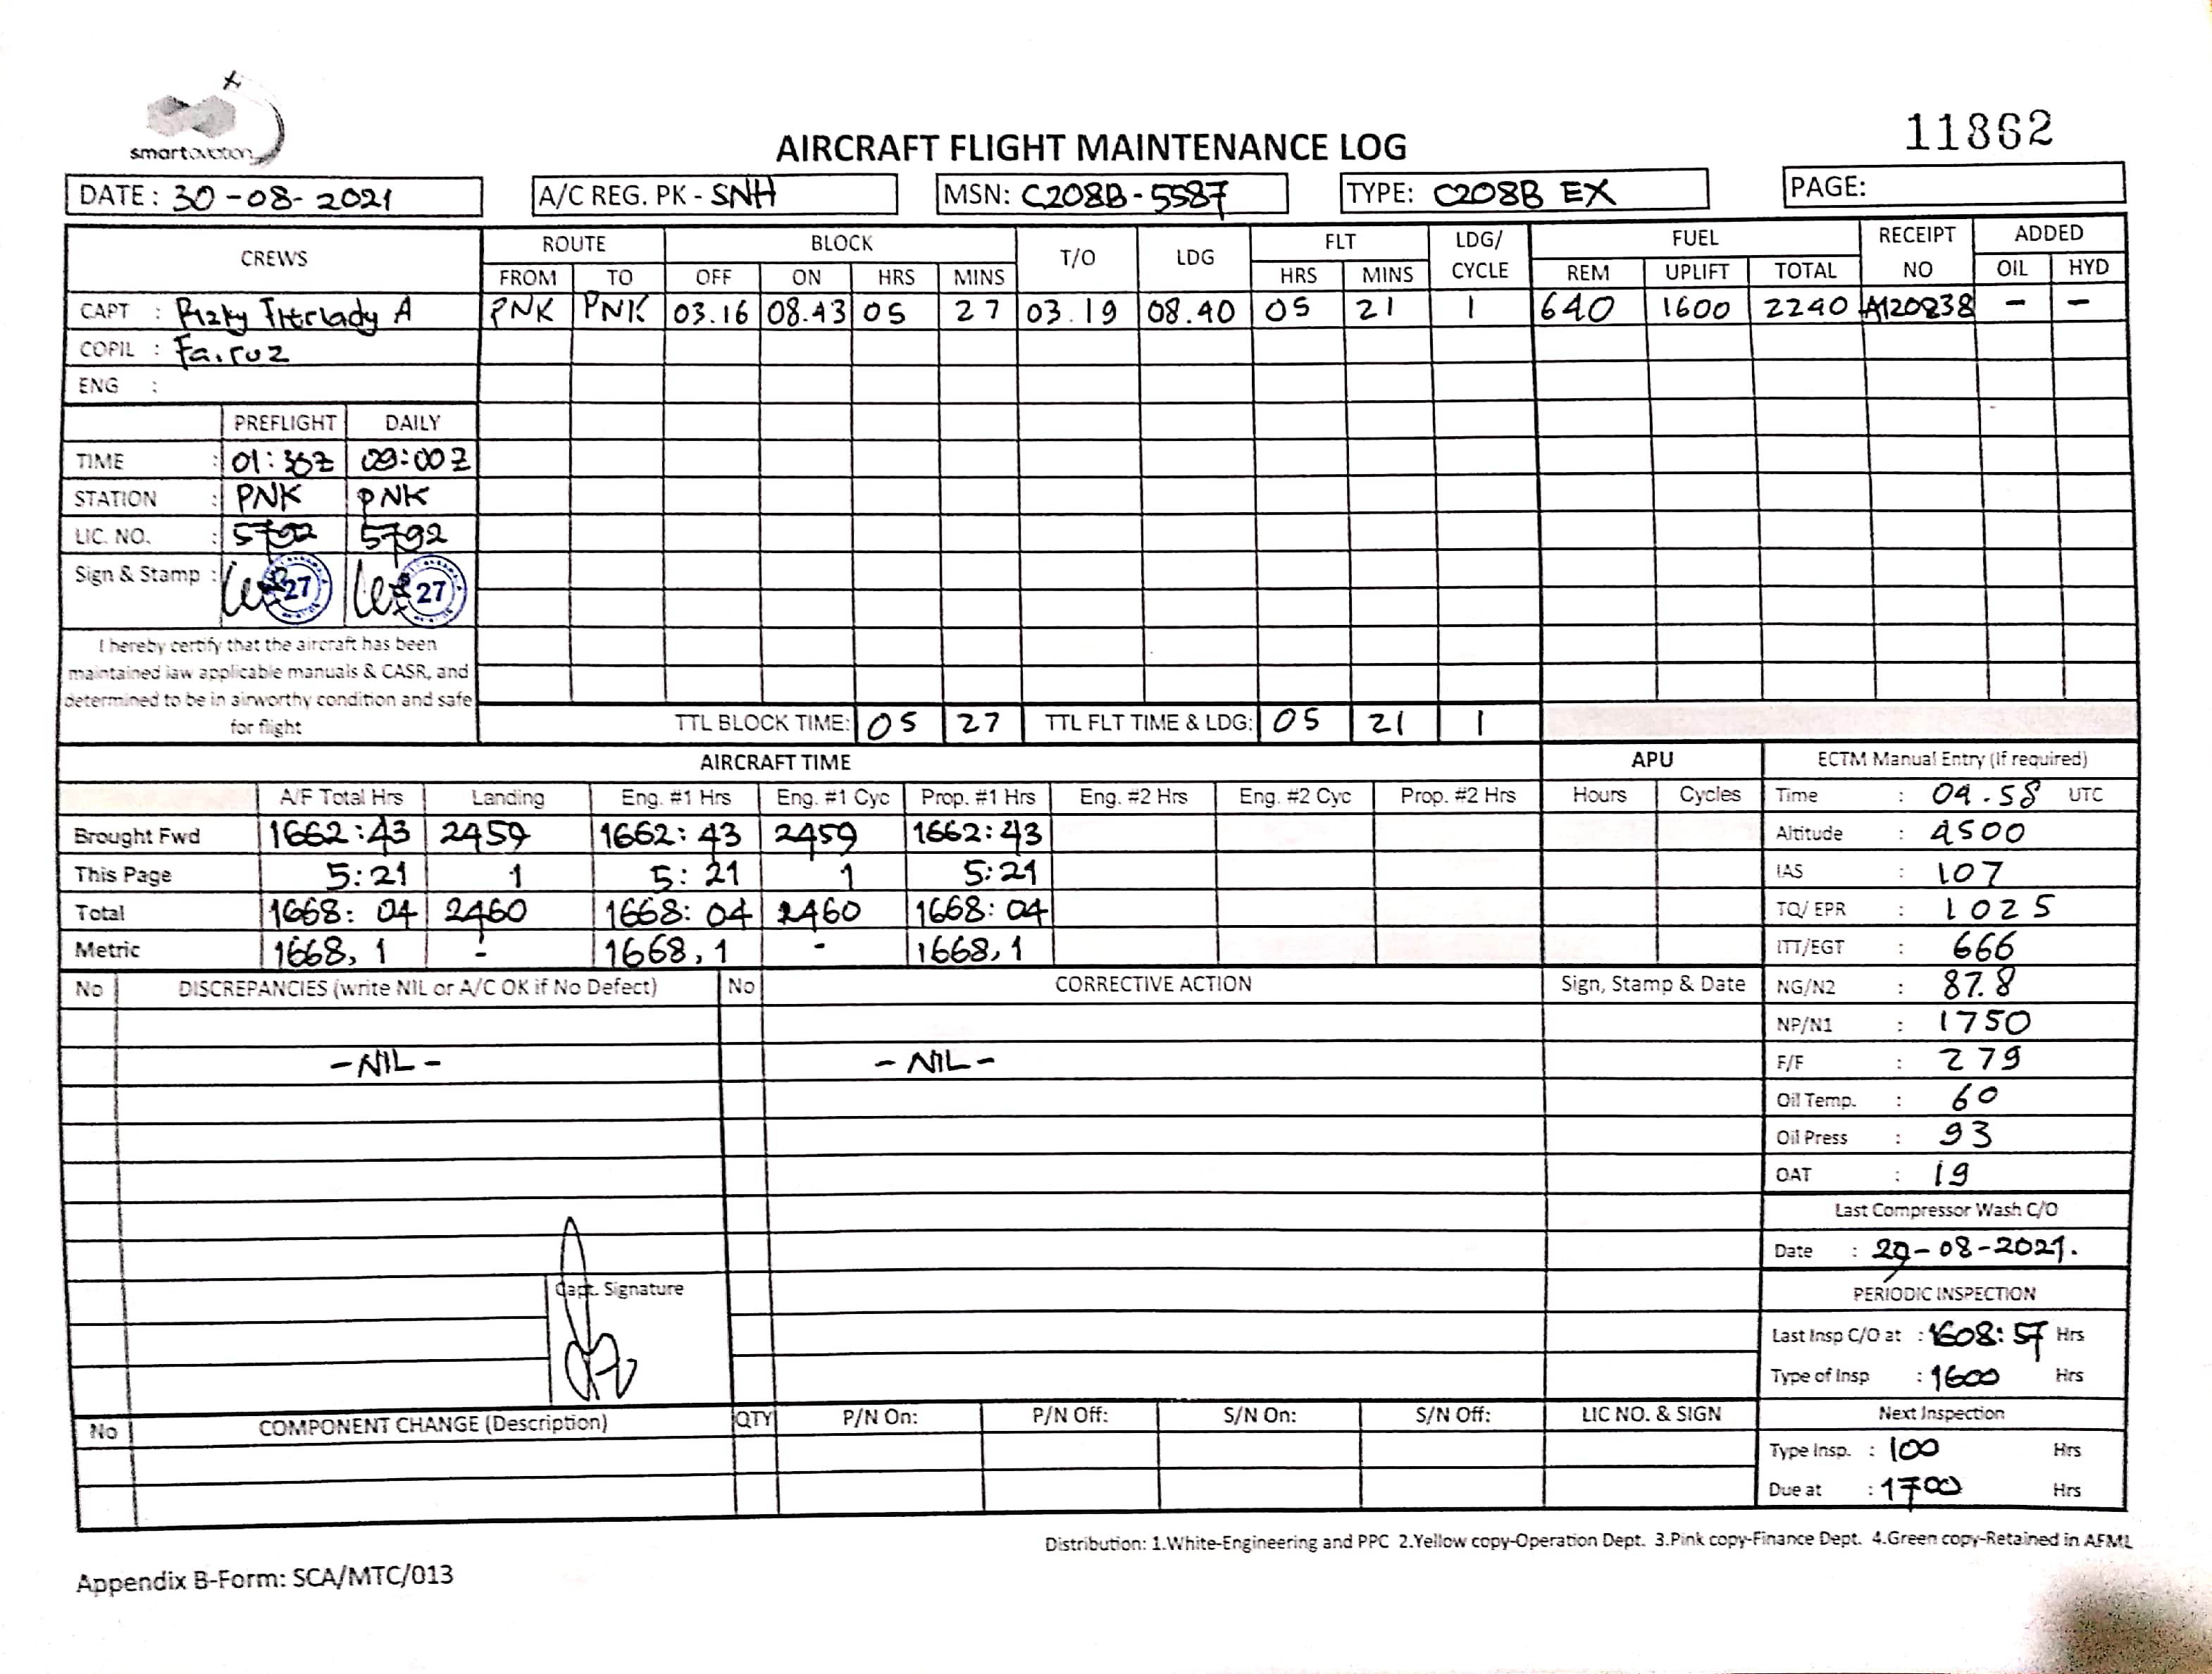 smartaviation
11862
AIRCRAFT FLIGHT MAINTENANCE LOG
DATE : 30-08-2021 A/C REG. PK - SNH MSN: C208B-5587 TYPE: C208B EX PAGE:
CREWS ROUTE BLOCK T/O LDG FLT LDG/ CYCLE FUEL RECEIPT NO ADDED
FROM TO OFF ON HRS MINS HRS MINS REM UPLIFT TOTAL OIL HYD
CAPT : A PNK PNK 03.16 08.43 05 27 03.19 08.40 05 21 1 640 1600 2240 A120838 - -
COPIL : Fairuz
ENG :
PREFLIGHT DAILY
TIME : 01:30Z 09:00Z
STATION : PNK PNK
LIC. NO. : 5792 5792
Sign & Stamp : 27 27
I hereby certify that the aircraft has been
maintained iaw applicable manuals & CASR, and
determined to be in airworthy condition and safe
for flight
TTL BLOCK TIME: 05 27 TTL FLT TIME & LDG: 05 21 1
AIRCRAFT TIME APU ECTM Manual Entry (If required)
A/F Total Hrs Landing Eng. #1 Hrs Eng. #1 Cyc Prop. #1 Hrs Eng. #2 Hrs Eng. #2 Cyc Prop. #2 Hrs Hours Cycles Time : 04.58 UTC
Brought Fwd 1662:43 2459 1662:43 2459 1662:43 Altitude : 4500
This Page 5:21 1 5:21 1 5:21 IAS : 107
Total 1668:04 2460 1668:04 2460 1668:04 TQ/ EPR : 1025
Metric 1668,1 - 1668,1 - 1668,1 ITT/EGT : 666
No DISCREPANCIES (write NIL or A/C OK if No Defect) No CORRECTIVE ACTION Sign, Stamp & Date NG/N2 : 87.8
NP/N1 : 1750
-NIL- -NIL- F/F : 279
Oil Temp. : 60
Oil Press : 93
OAT : 19
Last Compressor Wash C/O
Date : 29-08-2021.
Capt. Signature
PERIODIC INSPECTION
Last Insp C/O at : 1608:57 Hrs
Type of Insp : 1600 Hrs
No COMPONENT CHANGE (Description) QTY P/N On: P/N Off: S/N On: S/N Off: LIC NO. & SIGN Next Inspection
Type Insp. : 100 Hrs
Due at : 1700 Hrs
Distribution: 1.White-Engineering and PPC 2.Yellow copy-Operation Dept. 3.Pink copy-Finance Dept. 4.Green copy-Retained in AFML
Appendix B-Form: SCA/MTC/013